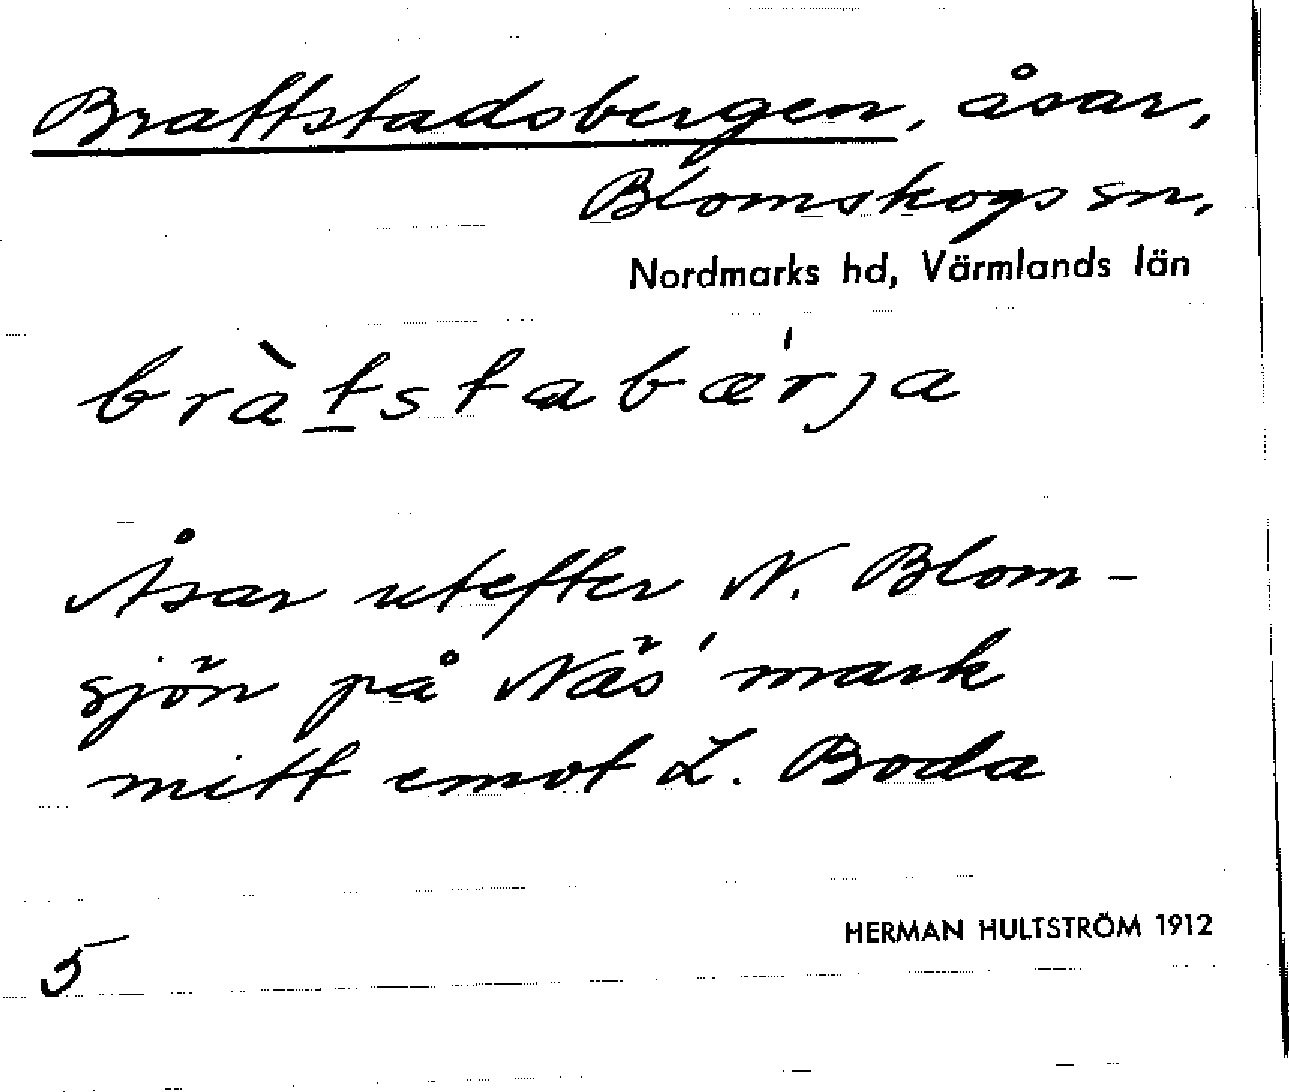 Brattstadsbergen, åsar,
Blomskogs sn,
Nordmarks hd, Värmlands län
bràt̲stabæ'rja
Åsar utefter N. Blom-
sjön på Näs' mark
mitt emot L. Boda
HERMAN HULTSTRÖM 1912
5